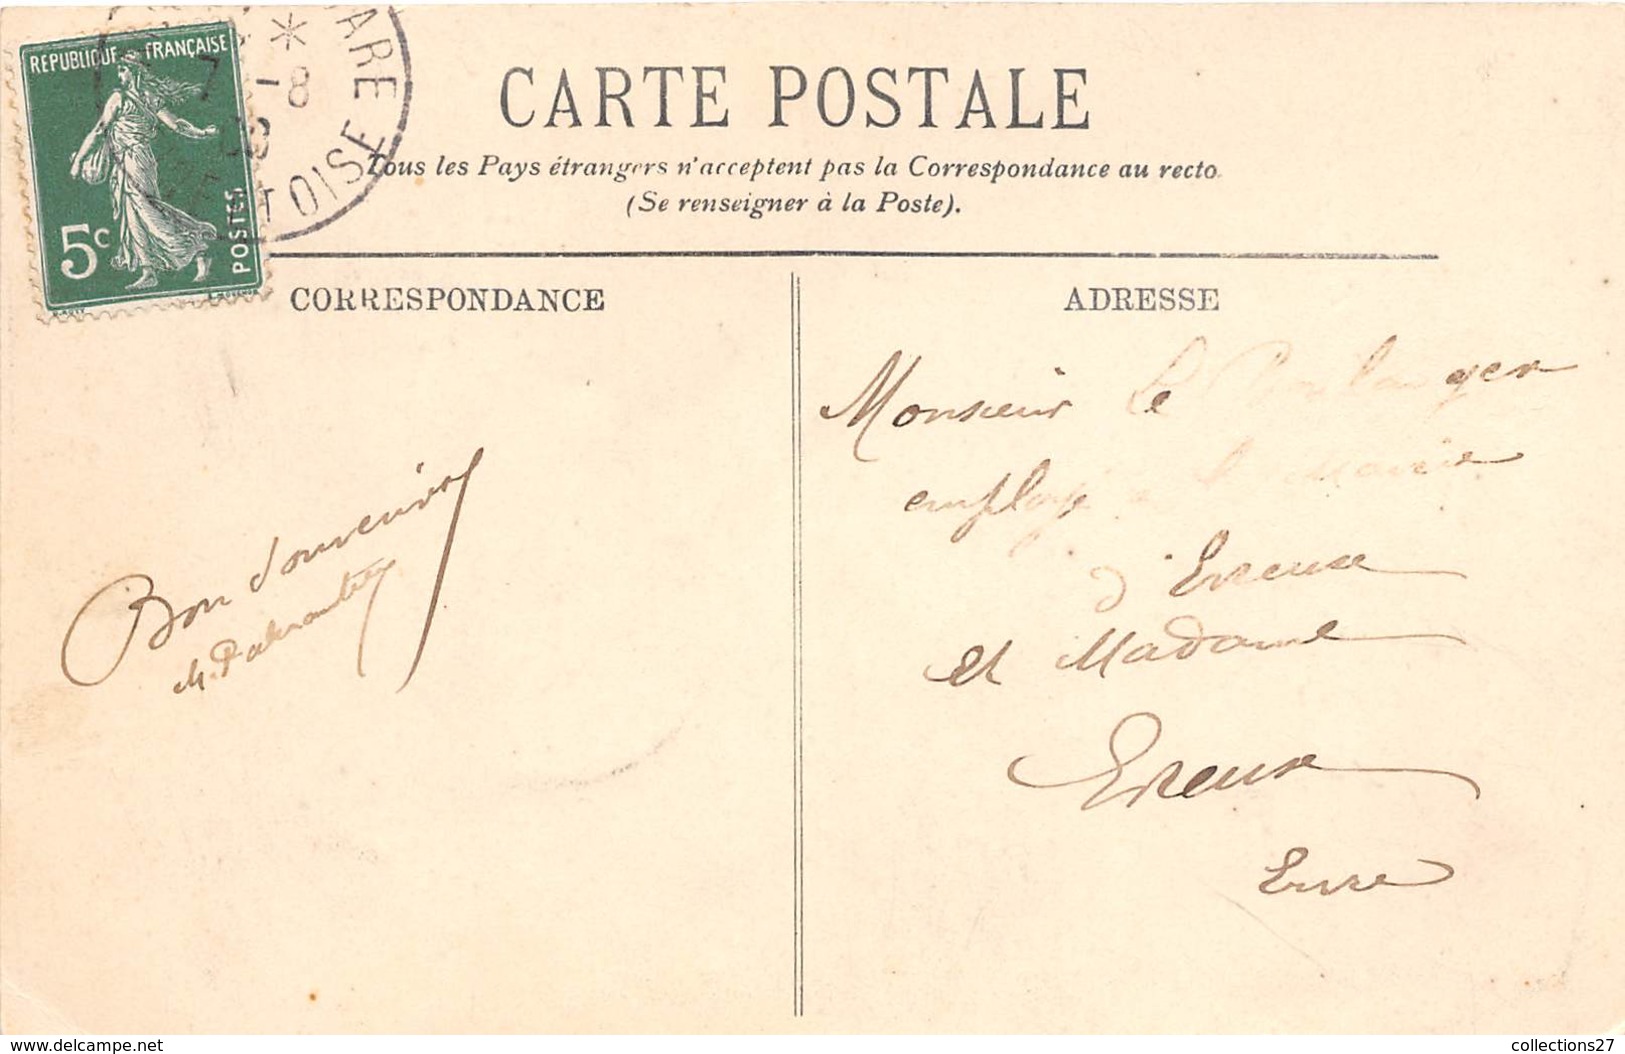 RÉPUBLIQUE FRANÇAISE
5c
POSTES
GARE
7 -8
ET OISE
CARTE POSTALE
Tous les Pays étrangers n'acceptent pas la Correspondance au recto.
(Se renseigner à la Poste).
CORRESPONDANCE
Bon Souvenir
M.
ADRESSE
Monsieur Le Boulanger
employé à la Mairie
d'Evreux
et Madame
Evreux
Eure
www.delcampe.net
collections27